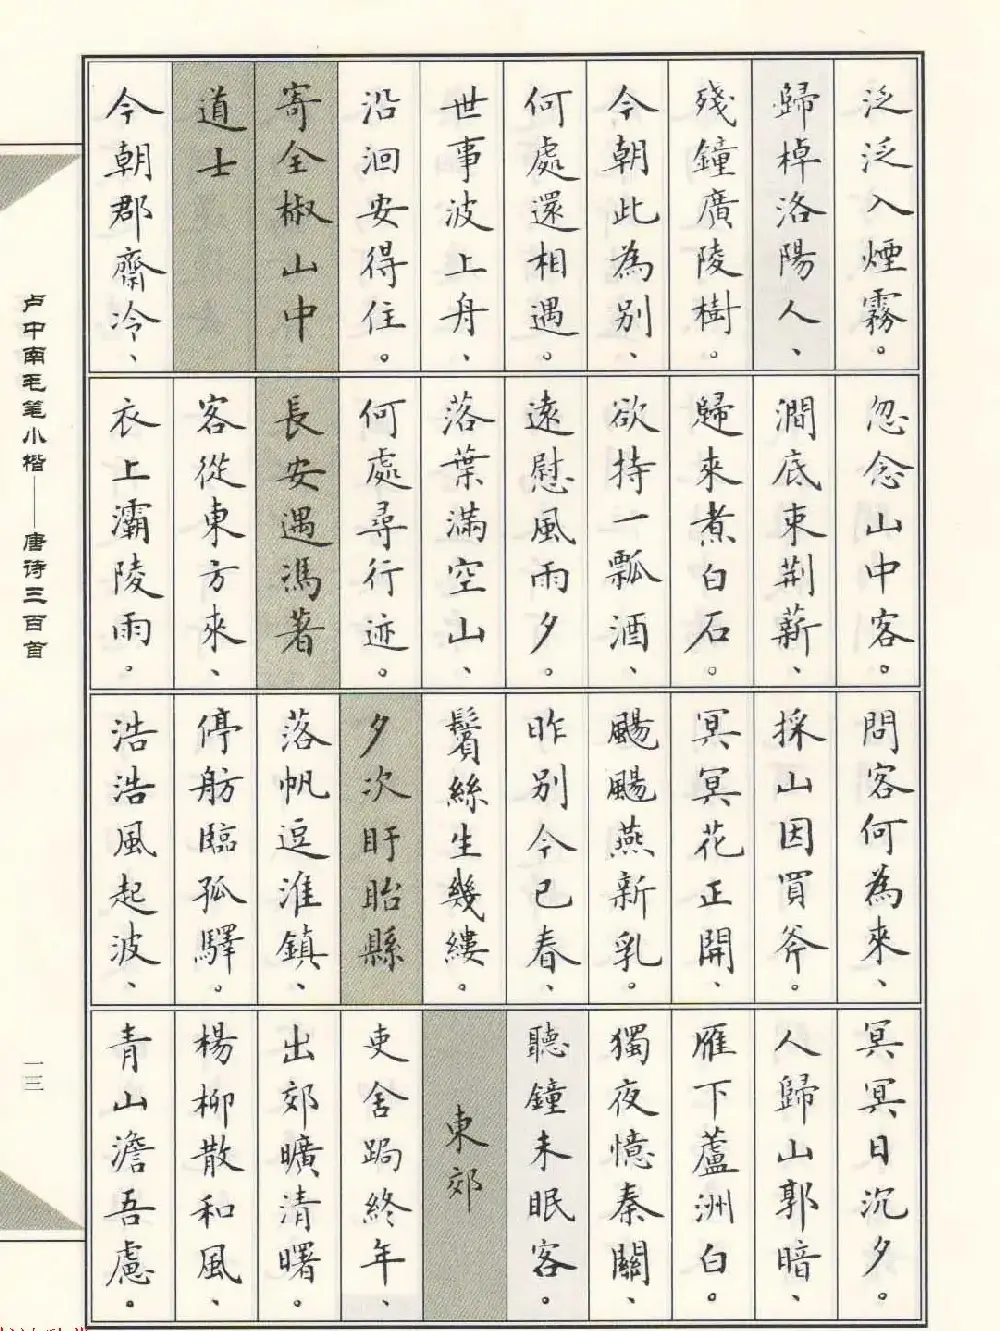 泛泛入煙霧。
歸棹洛陽人、
殘鐘廣陵樹。
今朝此為別、
何處還相遇。
世事波上舟、
沿洄安得住。
寄全椒山中
道士
今朝郡齋冷、
忽念山中客。
澗底束荆薪、
歸來煮白石。
欲持一瓢酒、
遠慰風雨夕。
落葉滿空山、
何處尋行迹。
長安遇馮著
客從東方來、
衣上灞陵雨。
問客何為來、
採山因買斧。
冥冥花正開、
颺颺燕新乳。
昨别今已春、
鬢絲生幾縷。
夕次盱眙縣
落帆逗淮鎮、
停舫臨孤驛。
浩浩風起波、
冥冥日沉夕。
人歸山郭暗、
雁下蘆洲白。
獨夜憶秦關、
聽鐘未眠客。
東郊
吏舍跼終年、
出郊曠清曙。
楊柳散和風、
青山澹吾慮。
卢中南毛笔小楷——唐诗三百首
一三